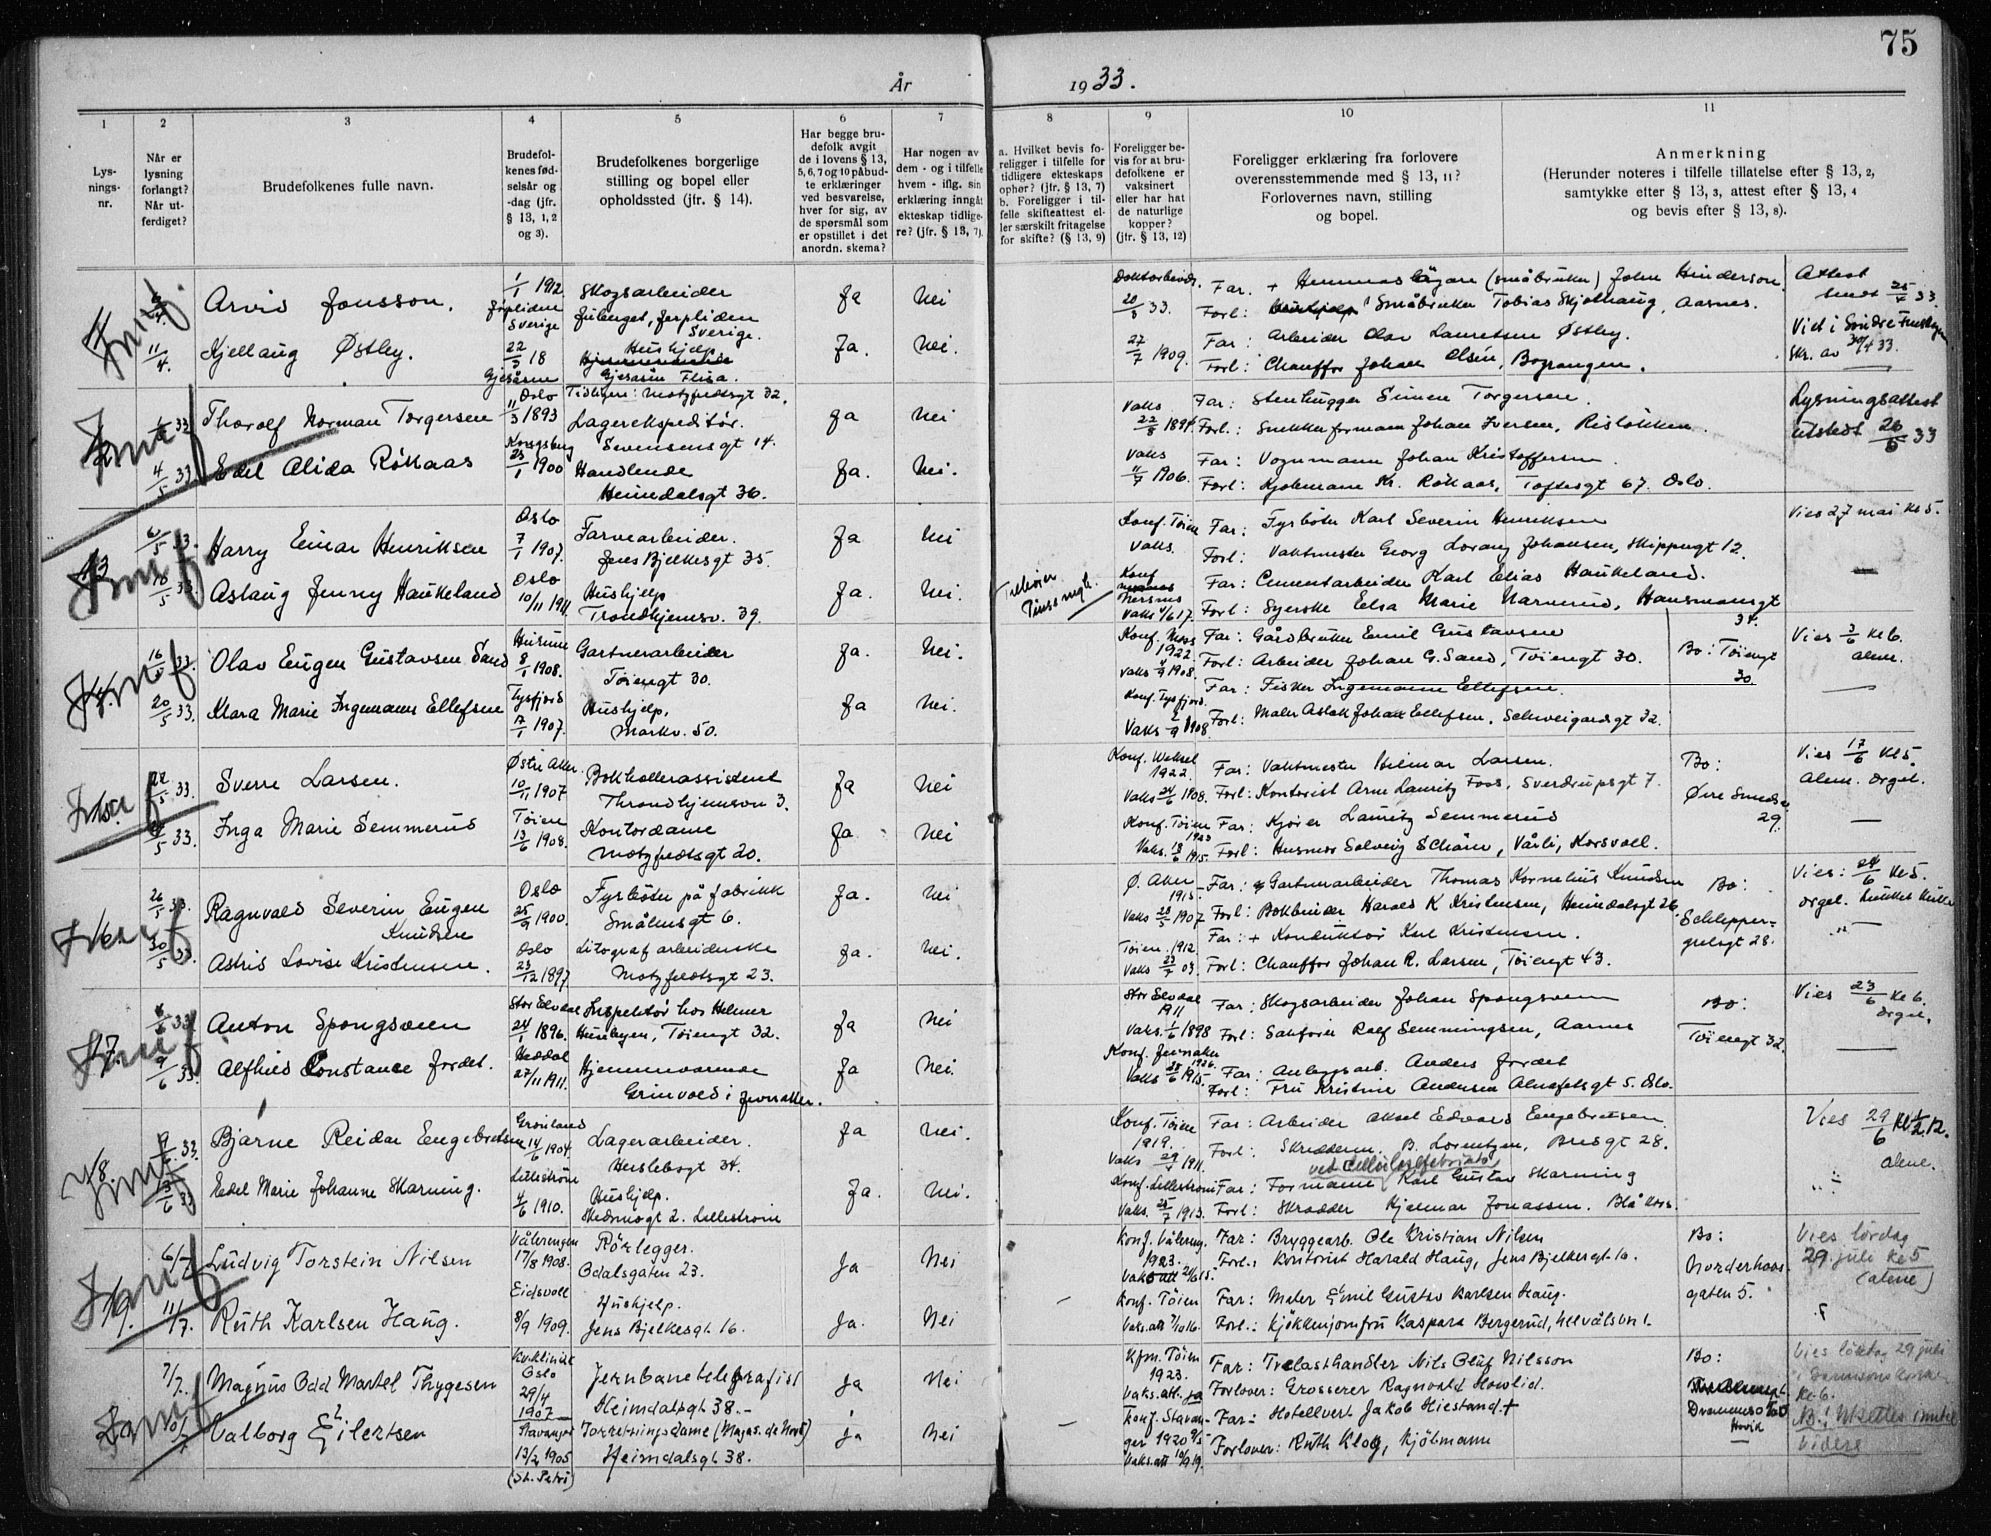 75
År 1933.
1 2 3 4 5 6 7 8 9 10 11
Lysnings-nr.
Når er lysning forlangt? Når ut-ferdiget?
Brudefolkenes fulle navn.
Brudefol-kenes fød-selsår og -dag (jfr. § 13, 1, 2 og 3).
Brudefolkenes borgerlige stilling og bopel eller opholdssted (jfr. § 14).
Har begge bru-defolk avgit de i lovens § 13, 5, 6, 7 og 10 påbud-te erklæringer ved besvarelse, hver for sig, av de spørsmål som er opstillet i det anordn. skema?
Har nogen av dem - og i tilfelle hvem - iflg. sin erklæring inngåt ekteskap tidlige-re? (jfr. § 13, 7).
a. Hvilket bevis fo-religger i tilfelle for tidligere ekteskaps ophør? (jfr. § 13, 7) b. Foreligger i til-felle skifteattest el-ler særskilt fritagelse for skifte? (§ 13, 9)
Foreligger be-vis for at bru-defolkene er vaksinert eller har hat de naturlige kopper? (jfr. § 13, 12)
Foreligger erklæring fra forlovere overensstemmende med § 13, 11? Forlovernes navn, stilling og bopel.
Anmerkning (Herunder noteres i tilfelle tillatelse efter § 13, 2, samtykke efter § 13, 3, attest efter § 13, 4 og bevis efter § 13, 8).
Arvid Jonsson. 1/1 1912. Sverige Skogsarbeider Ja Nei 20/3 33. Far. + Hemmansägare (småbruker) John Hinderson. Attest sendt 25/4 33.
Sverige. Forl: Småbruker Tobias Skjolhaug, Aasnes.
11/4. Kjellaug Østby. 22/3 18 Hushjelp Ja. Nei. 27/7 1909. Far: Arbeider Olav Lauritsen Østby. Vied i Søndre Finskogen 30/4 33.
Gjesåsen Gjesåsen Flisa. Forl: Chauffør Johan Olsen, Bograngen.
Thorolf Norman Torgersen Oslo 11/3 1893 Tidligere: Motzfeldtsgt 32. Lagerekspeditør. Sevensensgt 14. ja Nei Vaks 22/8 1894. Far: Stenhugger Simen Torgersen. Lysningsattest utstedt 26/5 33
Forl: Snekkerformann Johan Iversen, Risløkken.
4/5 33 Edel Alida Rökaas Kongsberg 23/1 1900 Handlende Heimdalsgt 36. Ja. Nei. Vaks 11/7 1906. Far: Vognmann Johan Kristoffersen.
Forl: Kr. Rökaas, Toftesgt 67. Oslo.
43 6/5 33. Harry Einar Henriksen Oslo 7/1 1907. Farvearbeider. Jens Bjelkesgt 35. Ja Nei Konf. Tøien Vaks. Far: Fyrbøter Karl Severin Henriksen Vies 27 mai kl 5.
Forl: Vaktmester Georg Lorang Johansen, Skippergt 12.
18/5 33. Aslaug Jenny Haukeland Oslo 10/11 1911. Hushjelp Trondhjemsv. 39. Ja. Nei. Konf Vaks 4/6 17. Far: Cementarbeider Karl Elias Haukeland.
Forl: Syerske Elsa Marie Narverud, Hausmannsgt 34.
44. 16/5 33. Olav Eugen Gustavsen Sand Hurum 8/1 1908. Gartnerarbeider Tøiengt 30. Ja. Nei. Konf. Moss 1922 Vaks 4/9 1908. Far: Gårdbruker Emil Gustavsen Vies 3/6 kl 6. alene.
Forl: Arbeider Johan G. Sand, Tøiengt 30. Bo: Tøiengt 30.
20/5 33. Klara Marie Ingemanns Ellefsen Tysfjord 17/1 1907. Hushjelp, Markv. 50. Ja Nei. Konf. Tysfjord. Vaks 2/9 1908 Far: Fisker Ingemann Ellefsen.
Forl: Maler Aslak Johan Ellefsen, Schweigardsgt 32.
22/5 33. Sverre Larsen. Østre Aker. 10/11 1907 Bokholderassistent Throndhjemsvn 3. Ja Nei Konf. Vestsel 1922. Vaks 24/6 1908. Far: Vaktmester Hilmar Larsen. Bo: Vies 17/6 kl 5. alene. orgel.
Forl: Kontorist Arne Lauritz Foss, Sverdrupsgt 7. 29.
5 33. Inga Marie Semmerud Tøien 13/6 1908. Kontordame Motzfeldtsgt 20. Ja. Nei Konf. Tøien 1923 Vaks. 18/6 1915 Far: Kjører Lauritz Semmerud
Forl: Husmor Solveig Schåin, Vårli, Korsvoll.
46 26/5 33. Ragnvald Severin Eugen Knudsen Oslo 25/9 1900. Fyrbøter på fabrikk Smålensgt 6. Ja. Nei Ø. Aker 1915 Vaks 28/5 1907 Far: Gartnerarbeider Thomas Kornelius Knudsen Bo: Schleppegrelsgt 28. Vies: 24/6 kl 5. orgel.
Forl: Bokbinder Harald K Kristensen, Heimdalsgt 26.
30/5 33. Astrid Lovise Kristensen. Oslo 23/12 1897 Litografarbeiderske Motzfeldtsgt 23. Ja. Nei. Tøien. 1912 Vaks 23/7 03. Far: + Konduktør Karl Kristensen.
Forl: Chauffør Johan R. Larsen, Tøiengt 43.
47. 6/6 33. Anton Spongsveen Stor Elvdal 24/1 1896. Inspektør hos Helmer Huseby en, Tøiengt 32. Ja Nei Stor Elvdal 1911 Vaks. 1/6 1898 Far: Skogsarbeider Johan Spongsveen Bo: Tøiengt 32. Vies 23/6 kl 6. orgel.
Forl: Sakfører Rolf Semmingsen, Aasnes
9/6 33. Alfhild Constance Fordet. Heddal 27/11 1911. Hjemmeværende Grinvold i Jevnaker. Ja Nei. Konf. Jevnaker 1926. Vaks 28/6 1915 Far: Anleggsarb. Anders Fordet
Forl: Fru Kristine Andersen Alnafetsgt 5. Oslo.
48. 9/6 33. Bjarne Reidar Engebretsen Grønland 14/6 1904. Lagerarbeider. Herslebsgt 34. Ja Nei. Konf. Tøien 1919. Vaks 29/4 1911. Far: Arbeider Aksel Edvard Engebretsen Vies 29/6 kl 1/2 12. alene.
Forl: Skredderm. B. Lorentzen, Brusgt 28.
Edel Marie Johanne Skarning. Lillestrøm 4/6 1910. Hushjelp. Skedsmogt 2. Lillestrøm Ja. Nei. Konf. Lillestrøm Vaks. 25/7 1913. Far: Formann ved Cellulosefabrikk Karl Gustav Skarning
Forl: Skredder Hjalmar Jonassen. Blå Kors.
49. 6/7 Ludvig Torstein Nilsen Vålerengen 17/8 1908. Rörlegger. Odalsgaten 23. Ja Nei Konf. Vålereng. 1923. Far: Bryggearb. Ole Kristian Nilsen Bo: Norderhovsgaten 5. Vies lördag 29. juli kl 5 (alene)
Forl.: Kontorist Harald Haug, Jens Bjelkesgt. 16.
11/7. Ruth Karlsen Haug. Eidsvoll 8/9 1909. Hushjelp. Jens Bjelkesgt. 16. Ja. Nei Konf. Tøien Vaks.att 7/10 16. Far: Maler Emil Gustav Karlsen Haug.
Forl.: Kjökkenjomfru Kaspara Bergerud, Ullevålsvn 1.
7/7. Magnus Odd Martel Thygesen Kv.klinikk Oslo 29/4 1907 Jernbanetelegrafist Heimdalsgt 38. Ja Nei Kfm. Tøien 1923. Vaks.att. ja Far: Trelasthandler Nils Oluf Nilsson Bo: Drammensv. Høvik Vies lördag 29 juli kl 6.
Forlover: Grosserer Ragnvald Howlid.
Valborg Eilertsen Stavanger 13/2 1905 (St. Petri) Forretningsdame (Magas. du Nord) Heimdalsgt. 38. Ja Nei Konf. Stavanger 1920 Vaks.att 10/9 19. Far: Hotellvert Jakob Hiestand + N.B.! videre
Forlover: Ruth Klog, Kjöbmann